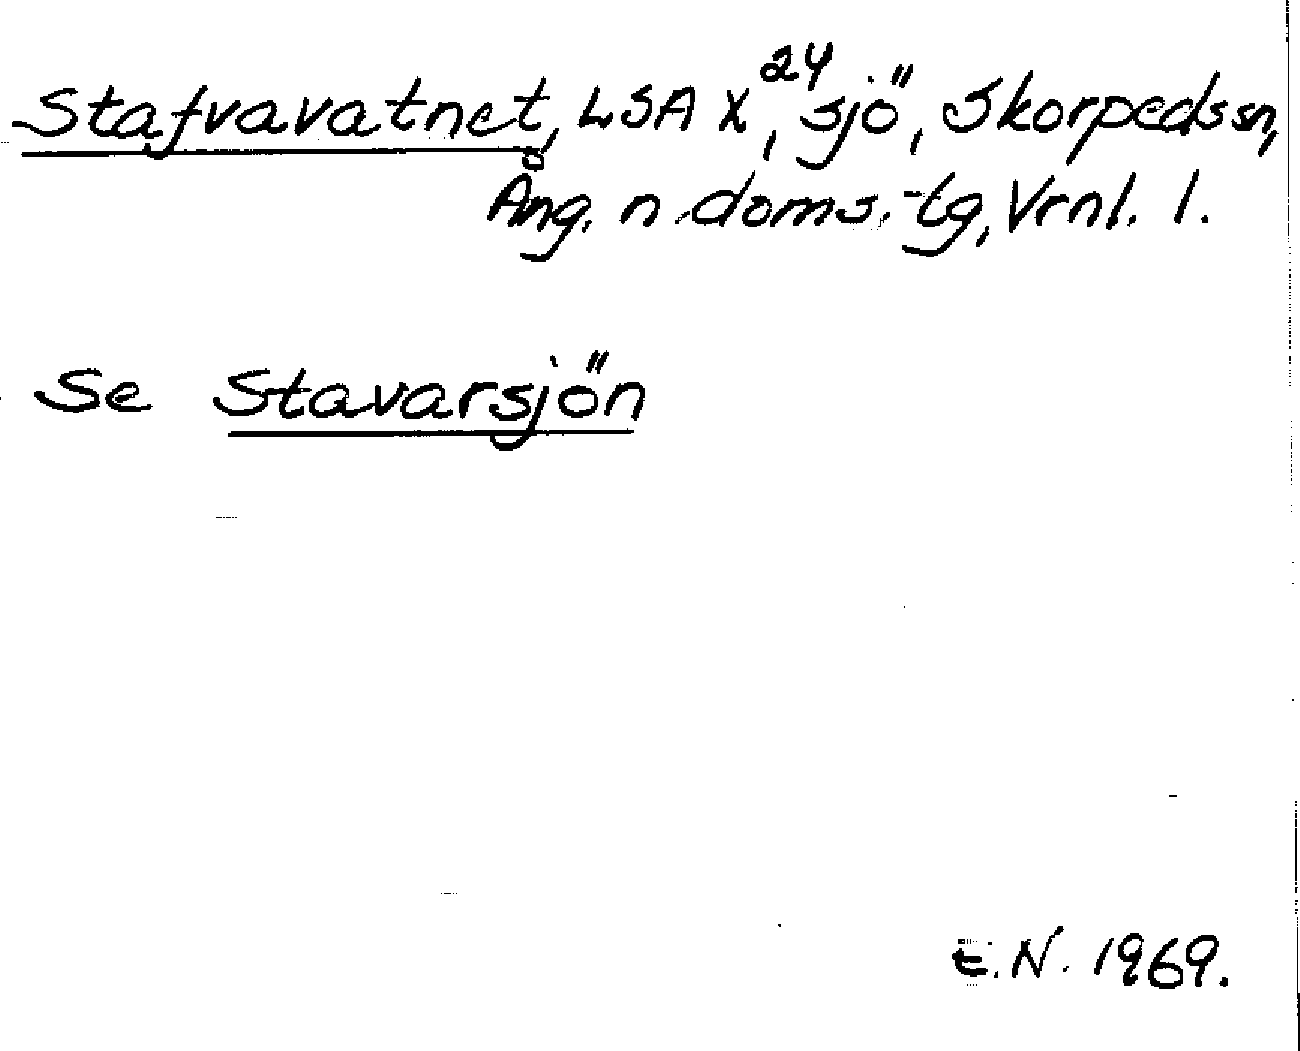 Stafvavatnet, LSA X, 24 sjö, Skorpeds sn,
Ång. n. doms.-tg, Vrnl. l.
Se Stavarsjön
E.N. 1969.